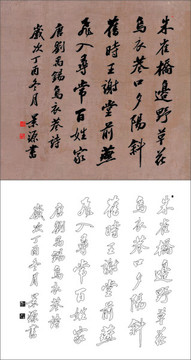 朱雀橋邊野草花
烏衣巷口夕陽斜
舊時王謝堂前燕
飛入尋常百姓家
唐劉禹錫烏衣巷詩
歲次丁酉冬月 景源書
朱雀橋邊野草花
烏衣巷口夕陽斜
舊時王謝堂前燕
飛入尋常百姓家
唐劉禹錫烏衣巷詩
歲次丁酉冬月 景源書